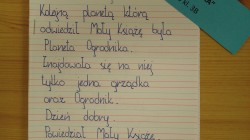 Kolejną planetą którą
odwiedził Mały Książę była
Planeta Ogrodnika.
Znajdowała się na niej
tylko jedna grządka
oraz Ogrodnik.
Dzień dobry.
Powiedział Mały Książę.